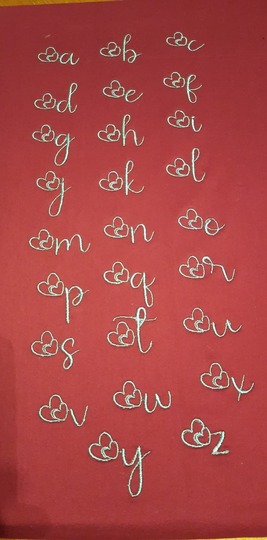 a b c
d e f
g h i
j k l
m n o
p q r
s t u
v w x
y z